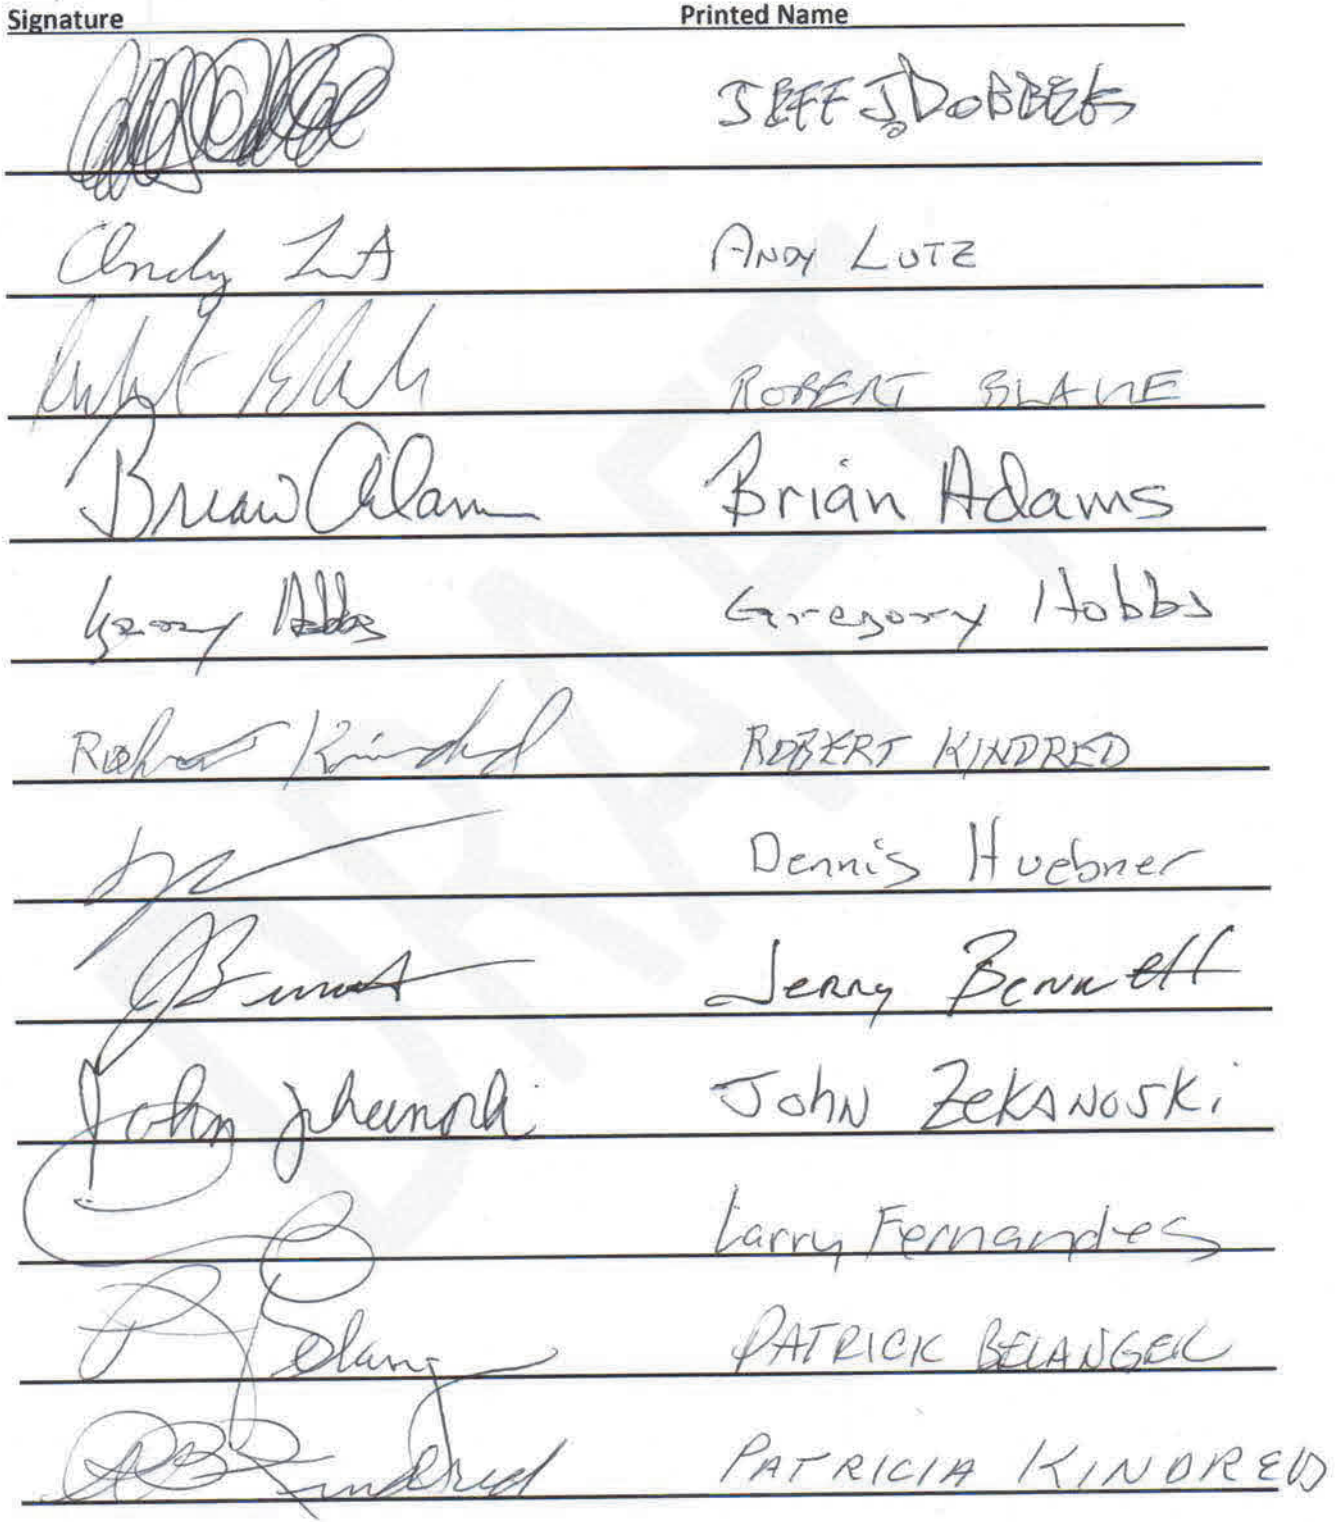 Signature Printed Name
JEFF J. DOBBELS
Andy Lutz ANDY LUTZ
ROBERT
Brian Adams Brian Adams
Gregory Hobbs Gregory Hobbs
Robert Kindred ROBERT KINDRED
Dennis Huebner
J Bennett Jerry Bennett
John Zekanoski John Zekanoski
Larry Fernandes
P Belanger PATRICK BELANGER
Kindred PATRICIA KINDRED
DRAFT